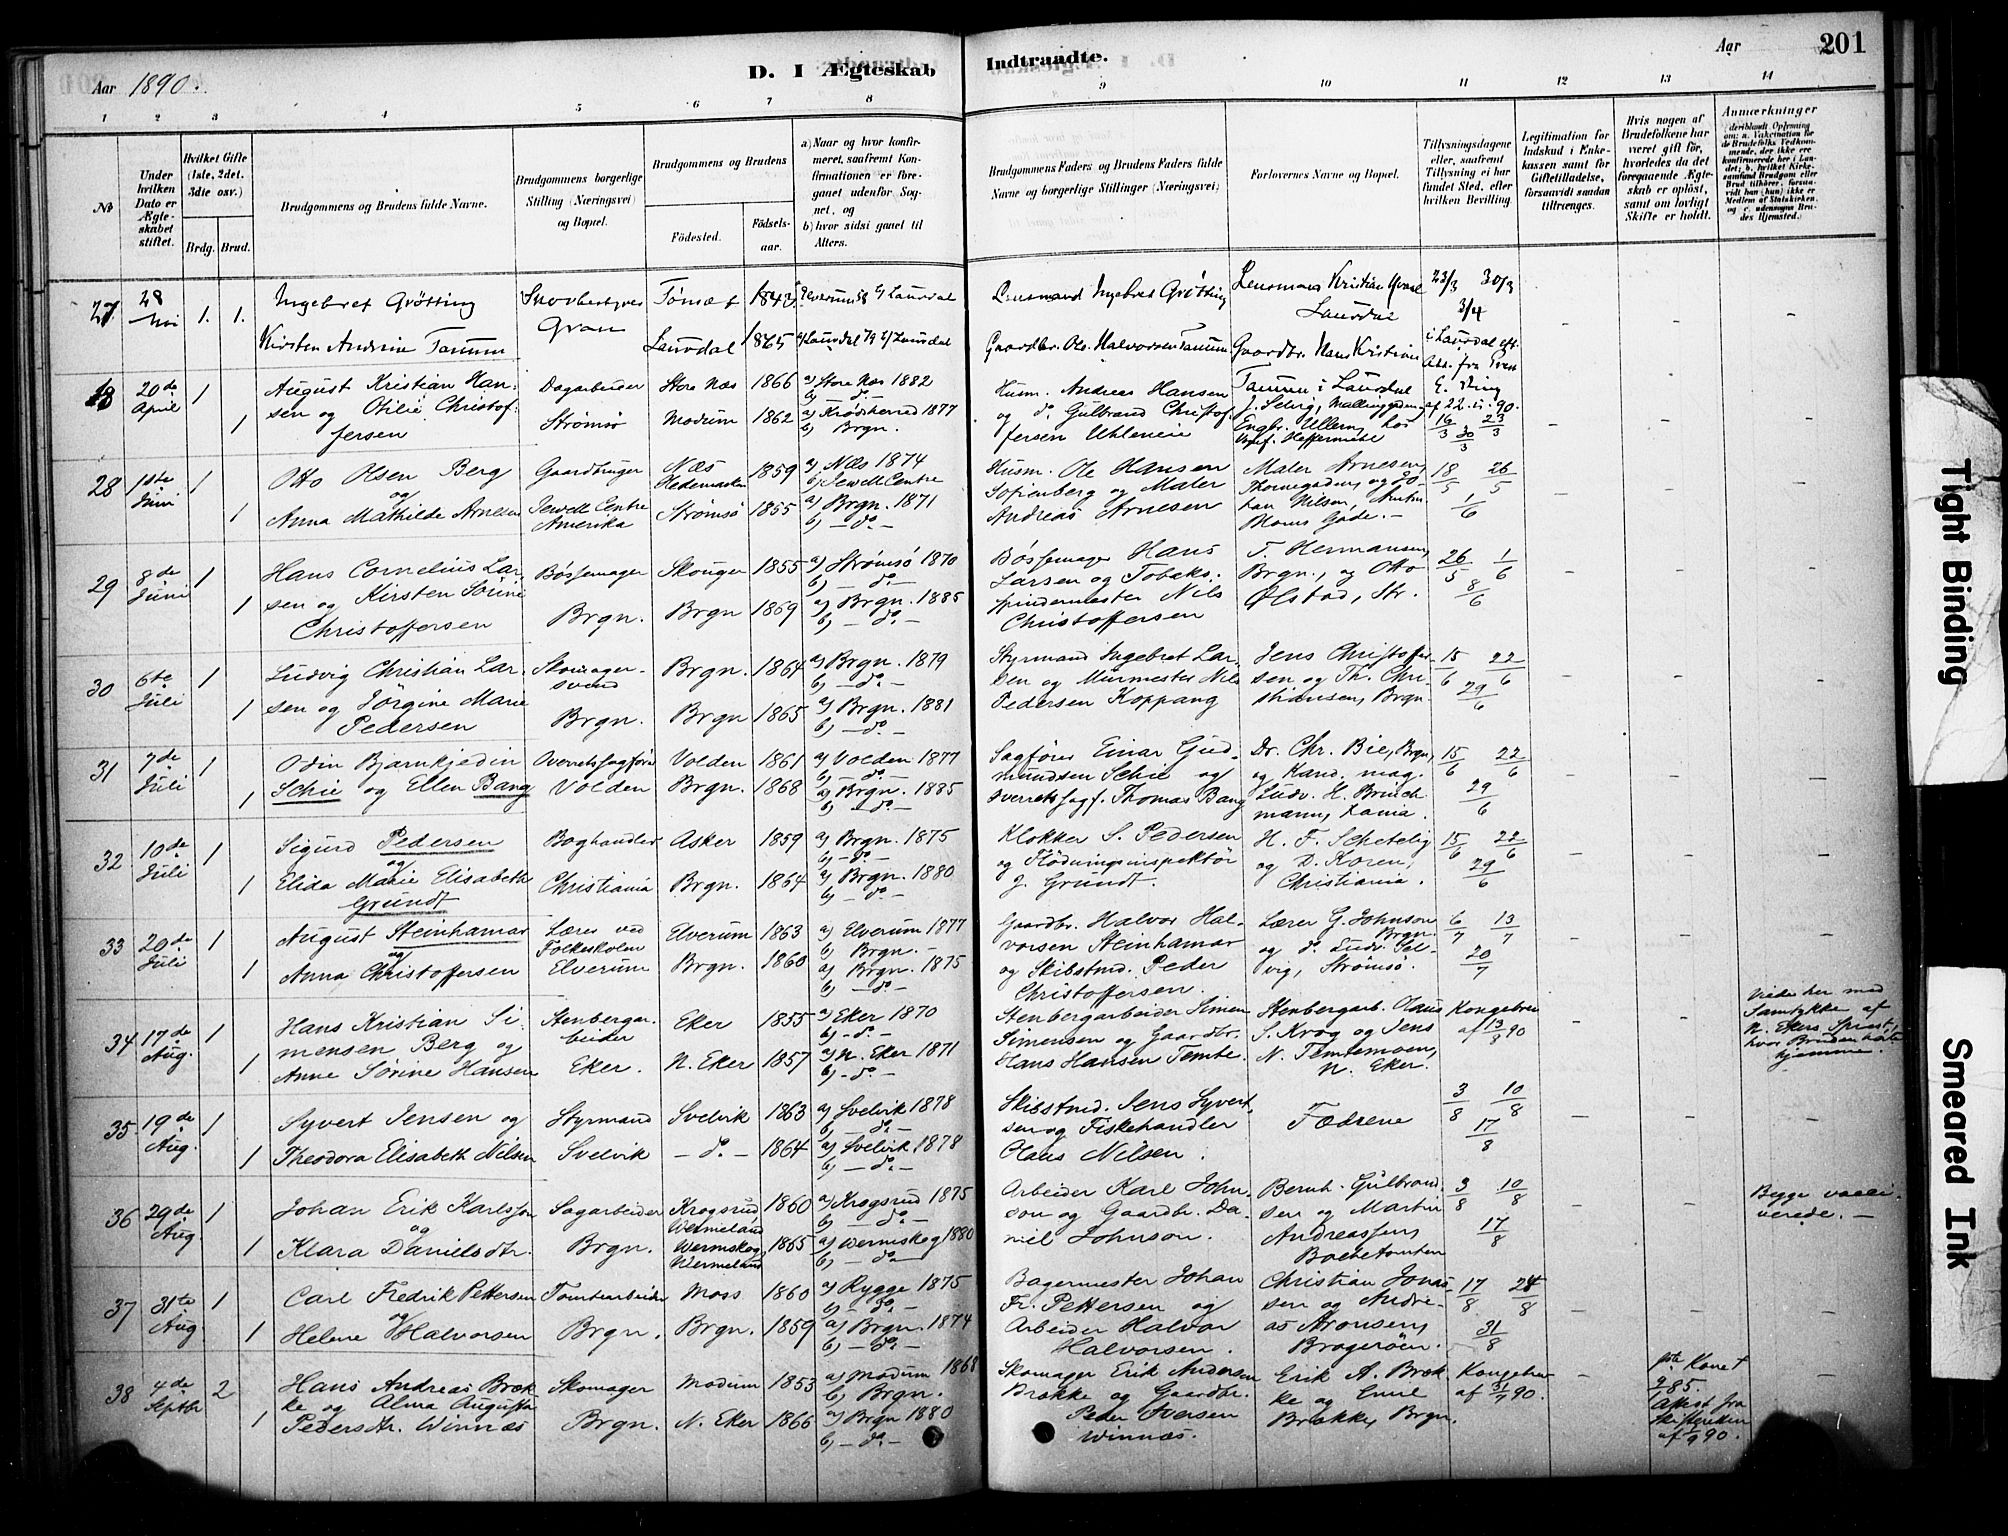 Aar 1890.
D. I Ægteskab
Indtraadte.
Aar
201
1 2 3 4 5 6 7 8
9 10 11 12 13 14
№
Under hvilken Dato er Ægteskabet stiftet.
Hvilket Gifte (1ste, 2det, 3die osv.)
Brdg. Brud.
Brudgommens og Brudens fulde Navne.
Brudgommens borgerlige Stilling (Næringsvei) og Bopæl.
Brudgommens og Brudens
Födested.
Födselsaar.
a) Naar og hvor konfirmeret, saafremt Konfirmationen er foregaaet udenfor Sognet, og
b) hvor sidst gaaet til Alters.
Brudgommens Faders og Brudens Faders fulde Navne og borgerlige Stillinger (Næringsvei)
Forlovernes Navne og Bopæl.
Tillysningsdagene eller, saafremt Tillysning ei har fundet Sted, efter hvilken Bevilling.
Legitimation for Indskud i Enkekassen samt for Giftetilladelse, forsaavidt saadan tiltrænges.
Hvis nogen af Brudefolkene har været gift før, hvorledes da det foregaaende Ægteskab er oplöst, samt om lovligt Skifte er holdt.
Anmærkninger
27. 28 1. 1. Ingebret Grötting Gran Tönset 1843 Lensmand Ingebret Grötting Lensmand Kristian 23/3 30/3
3/4
Kirsten Andrine Tanum Laurdal 1865 Gaardbr. Ols. Halvorsen Tanum Gaardbr. Hans Kristian
20de April 1 August Kristian Han- Dagarbeider Store Næs 1866 a) Store Næs 1882 Husm. Andreas Hansen Tanum i Laurdal
1 sen og Otilie Christof- Strømsø Modum 1862 a) Krødsherred 1877 og do Gulbrand Christof-
fersen b) Brgn. fersen Uhleneie 16/3 23/3 30/3
28 1ste Juni 1 Otto Olsen Berg Næs Hedemarken 1859 a) Næs 1874 Husm. Ole Hansen Maler Arnesen, 18/5 26/5
og b) Jewell Centre Sofienberg og Maler
1 Anna Mathilde Arnesen Jewell Centre Amerika Strømsø 1855 a) Brgn. 1871 Andreas Arnesen 1/6
b) — do. —
29 8de Juni 1 Hans Cornelius Lar- Bøssemager Skouger 1855 a) Strømsø 1870 Bøssemager Hans T. Hermansen, 26/5 1/6
1 sen og Kirsten Sørine Brgn. Brgn 1869 a) Brgn. 1885 Larsen og Tobaks- Brgn., og Otto 8/6
Christoffersen b) — do. — spindermester Nils Ølstad, Str.
Christoffersen
30 6te Juli 1 Ludvig Christian Lar- Skomager- Brgn. 1864 a) Brgn. 1879 Styrmand Ingebret Lar- Jens Christoffer- 15/6 22/6
1 sen og Jörgine Marie svend b) — do. — sen og Murmester Nils sen og Th. Chri- 29/6
Pedersen Brgn. Brgn 1865 a) Brgn. 1881 Pedersen Koppang stiansen, Brgn.
b) — do. —
31 7de Juli 1 Odin Bjarnhjedin Overretssagförer Volden 1861 a) Volden 1877 Sagfører Einar Gud- Dr. Chr. Bie, Brgn, 15/6 22/6
1 Schie og Ellen Bang Volden Brgn. 1868 a) Brgn. 1885 mundsen Schie og og Kand. mag. 29/6
b) — do. — overretssagf. Thomas Bang Ludv. H. Bruch-
mann,
32 10de Juli 1 Sigurd Pedersen Boghandler Asker 1859 a) Brgn. 1875 Klokker S. Pedersen H. F. Schetelig 15/6 22/6
og b) — do. — og Flödningsinspektör og D. Koren,
1 Elida Marie Elisabeth Christiania Brgn. 1864 a) Brgn. 1880 J. Grundt. Christiania. 29/6
Grundt b) — do. —
33 20de Juli 1 August Steinhamar Lærer ved Elverum 1863 a) Elverum 1877 Gaardbr. Halvor Hal- Lærer G. Johnson 6/7 13/7
og Folkeskolen b) Brgn. — vorsen Steinhamar Brgn.
1 Anna Christoffersen Elverum Brgn. 1860 a) Brgn. 1875 og Skibstmd. Peder og do. Ludv. Sel- 20/7
b) — do. — Christoffersen. vig, Strømsø.
34 17de Aug. 1 Hans Kristian Si- Stenbergar- Eker 1855 a) Eker 1870 Stenbergarbeider Simen Stenbergarb. Olaus Kongebrev Viede her med
mensen Berg og beider b) — do. — Simensen og Gaardbr. S. Krog og Jens af 13/8 90 Samtykke af
1 Anne Sørine Hansen Eker. N. Eker 1857 a) N. Eker 1871 Hans Hansen Temte. N. Temtemoen, N. Ekers Sprest,
b) — do. — N. Eker. hvor Bruden hørte hjemme.
35 19de Aug. 1 Syvert Jensen og Styrmand Svelvik 1863 a) Svelvik 1878 Skibstmd. Jens Syvert- Fædrene 3/8 10/8
1 Theodora Elisabeth Nilsen Svelvik — do. — 1864 a) Svelvik 1878 sen og Fiskehandler 17/8
b) — do. — Olaus Nilsen.
36 29de Aug. 1 Johan Erik Karlsson Sagarbeider Krogsrud 1860 a) Krogsrud 1875 Arbeider Karl John- Bernh. Gulbrand- 3/8 10/8 Begge vacci-
og Wermeland b) — do. — son og Gaardbr. Da- sen og Martin verede. —
1 Klara Danielsdtr. Brgn. Wermskog, Wermeland 1865 a) Wermskog 1880 niel Johnson. Andreassen, 17/8
b) — do. —
37 31te Aug. 1 Carl Fredrik Pettersen Tomtearbeider Moss 1860 a) Rygge 1875 Bagermester Johan Christian Jonas- 17/8 24/8
og b) — do. — Fr. Pettersen og sen og Andre-
1 Helene Halvorsen Brgn. Brgn. 1859 a) Brgn. 1874 Arbeider Halvor as Aronsen, 31/8
b) — do. — Halvorsen. Bragerøen.
38 4de Septbr 2 Hans Andreas Bræk- Skomager Modum 1853 a) Modum 1868 Skomager Erik Andersen Erik A. Bræk- Kongebrev 1ste Konet
ke og Alma Augusta b) Brgn. Brække og Gaardbr. ke og Emil af 31/7 90. 285.
1 Pedersdtr. Winnæs Brgn. N. Eker 1866 a) Brgn 1880 Peder Iversen Brække, Brgn. Attest fra
b) — do. — Winnæs. Skifteretten af 1/9 90.
Tight Binding
Smeared Ink